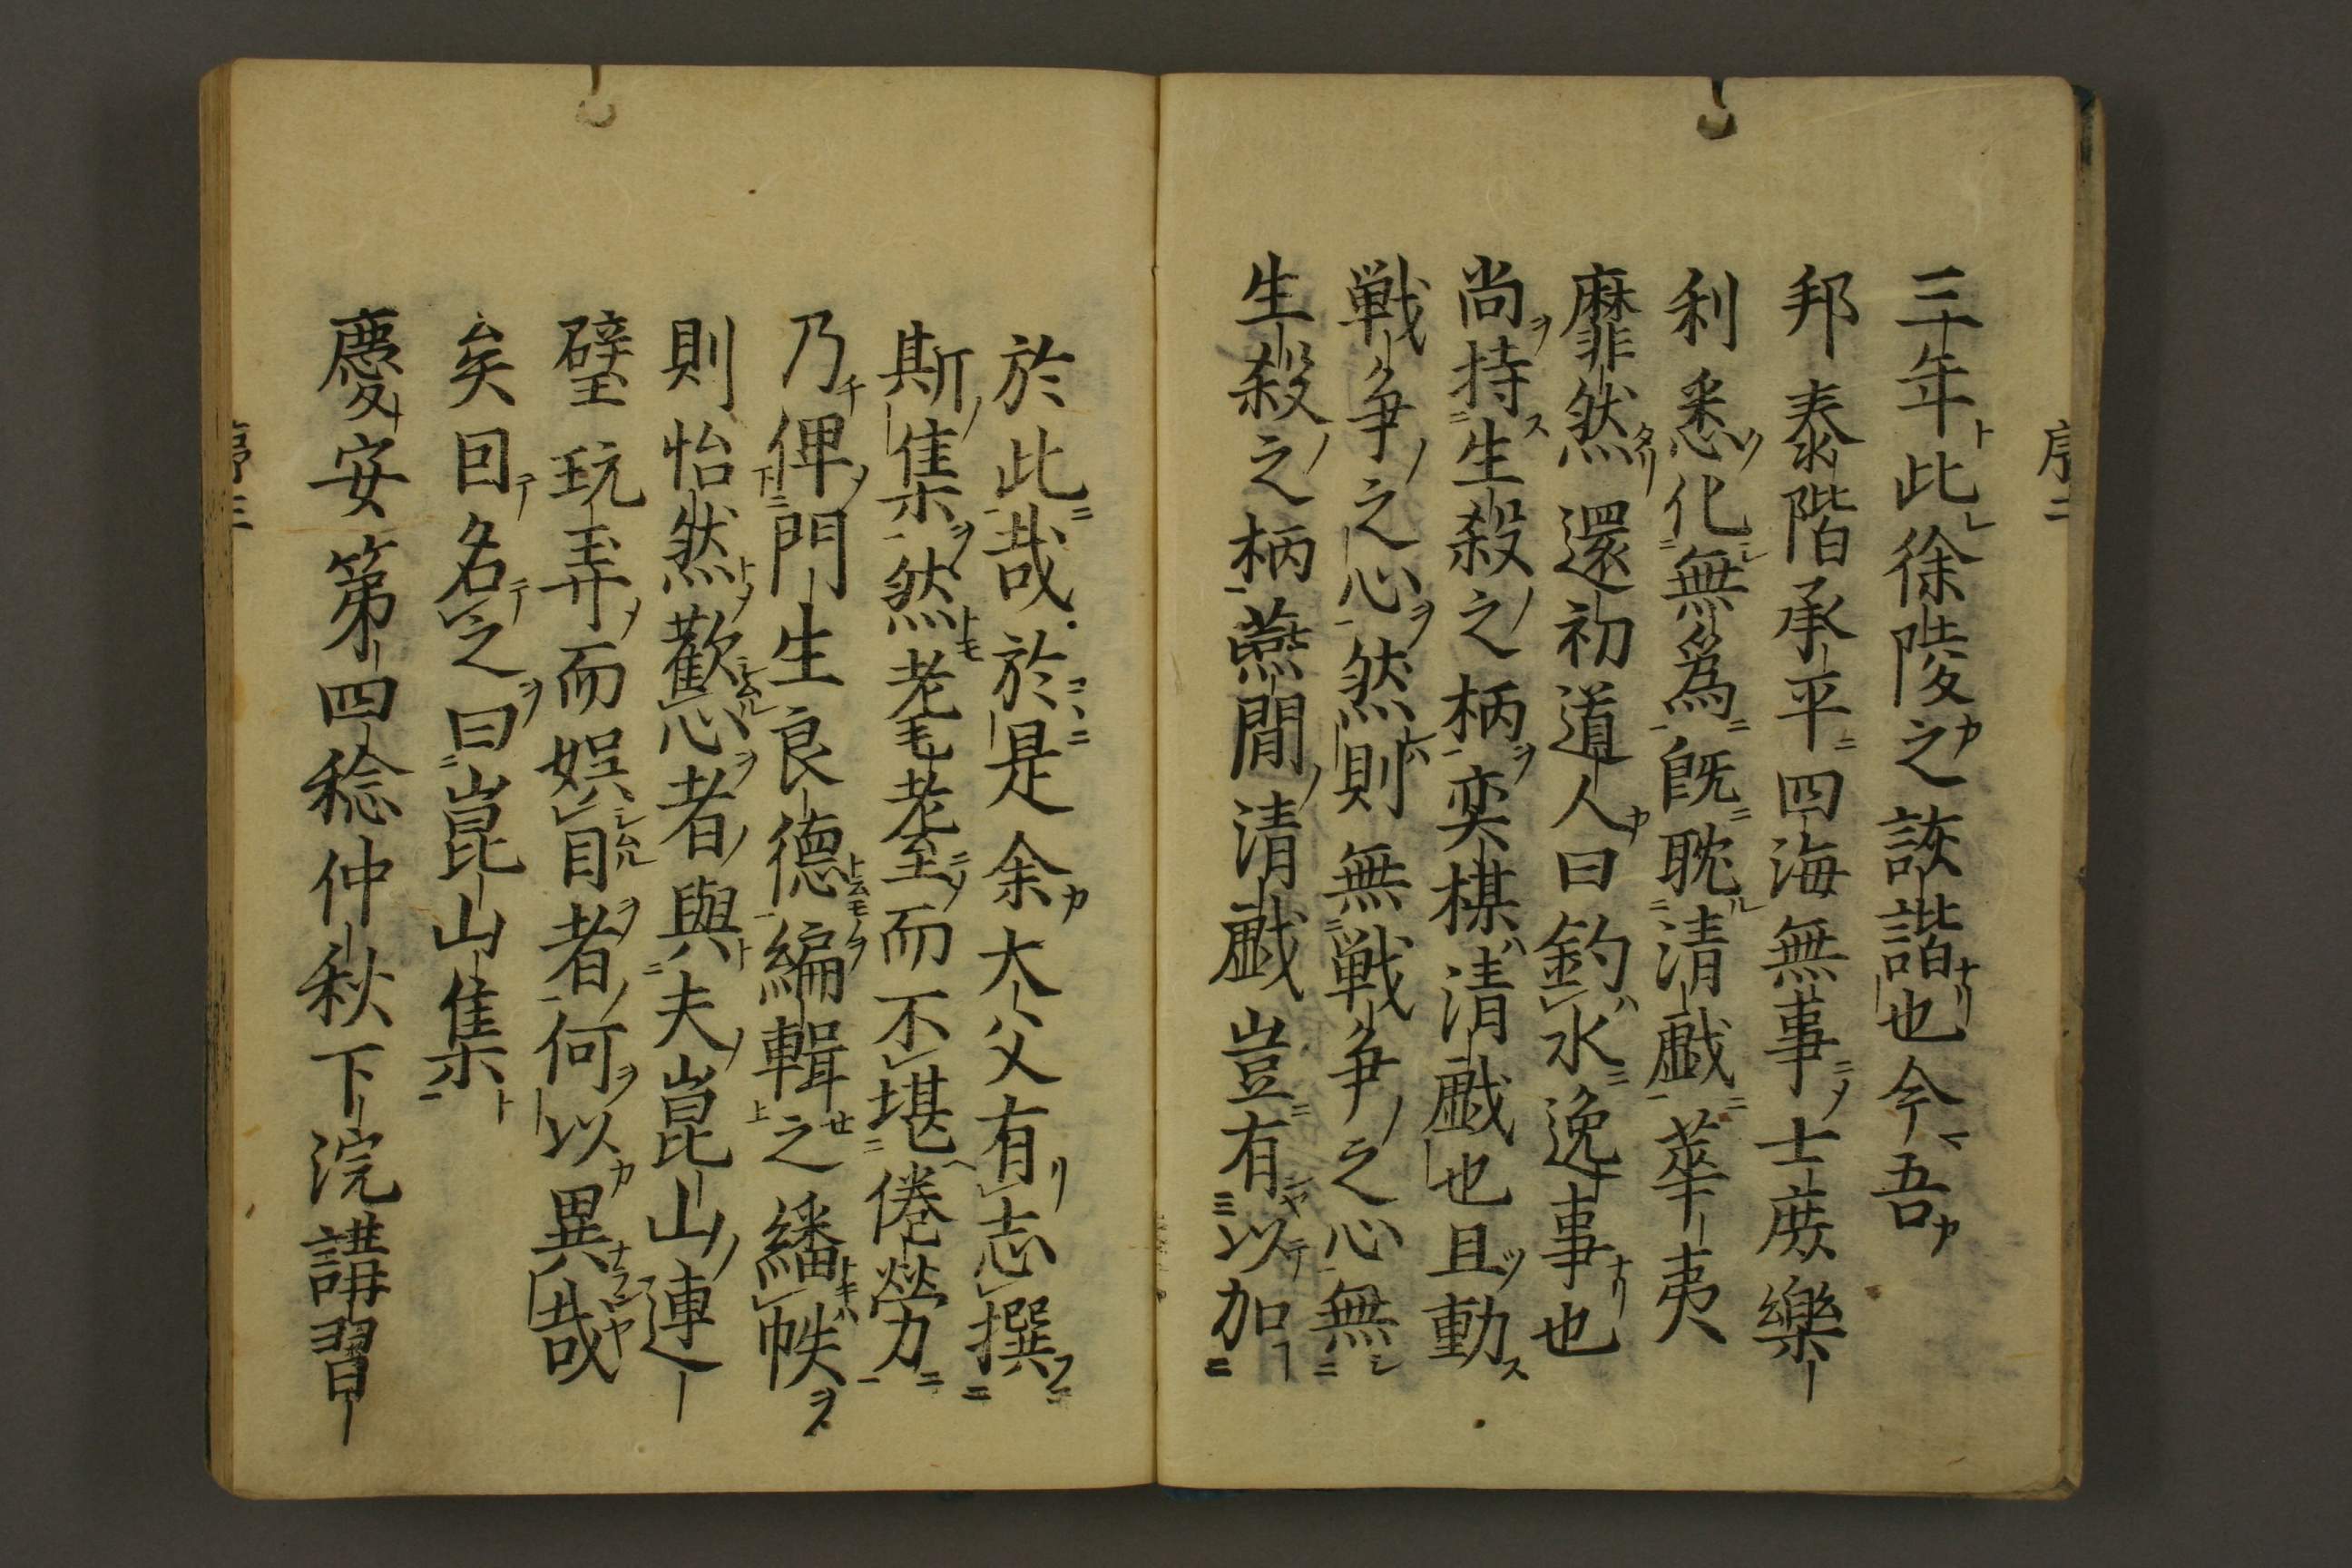 序二
三十年此徐陵之詼諧也今吾
邦泰階承平四海無事士庶樂
利悉化無爲既耽清戯華夷
靡然還初道人曰釣水逸事也
尚持生殺之柄奕棋清戯也且動
戦争之心然則無戦争之心無
生殺之柄燕間清戯豈有以加
於此哉於是余大父有志撰
斯集然耄耋而不堪倦勞
乃俾門生良德編輯之繙帙
則怡然歡心者與夫崑山連
璧玩弄而娯目者何以異哉
矣因名之曰崑山集
慶安第四稔仲秋下浣講習
序三